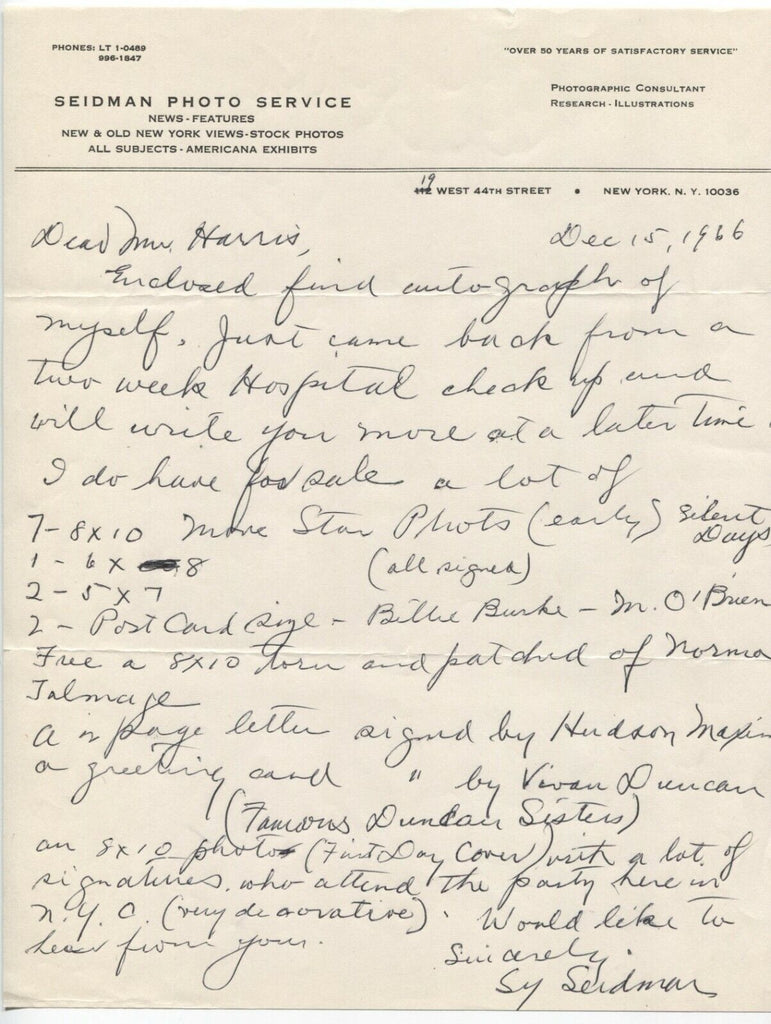 PHONES: LT 1-0489
996-1847
"OVER 50 YEARS OF SATISFACTORY SERVICE"
PHOTOGRAPHIC CONSULTANT
RESEARCH - ILLUSTRATIONS
SEIDMAN PHOTO SERVICE
NEWS - FEATURES
NEW & OLD NEW YORK VIEWS - STOCK PHOTOS
ALL SUBJECTS - AMERICANA EXHIBITS
19 WEST 44TH STREET • NEW YORK, N. Y. 10036
Dear Mr. Harris, Dec 15, 1966
Enclosed find autograph of
myself. Just came back from a
two week Hospital check up and
will write you more at a later time.
I do have for sale a lot of
7 - 8x10 Movie Star Phots (early) Silent Days
1 - 6 x 8 (all signed)
2 - 5 x 7
2 - Post Card size - Billie Burke - M. O'Brien
Free a 8x10 torn and patched of Norma
Talmage
a page letter signed by Hudson Maxim
a greeting card " by Vivan Duncan
(Famous Duncan Sisters)
an 8x10 photo (First Day Cover) with a lot of
signatures who attend the party here in
N.Y.C. (very decorative). Would like to
hear from you.
Sincerely,
Sy Seidman